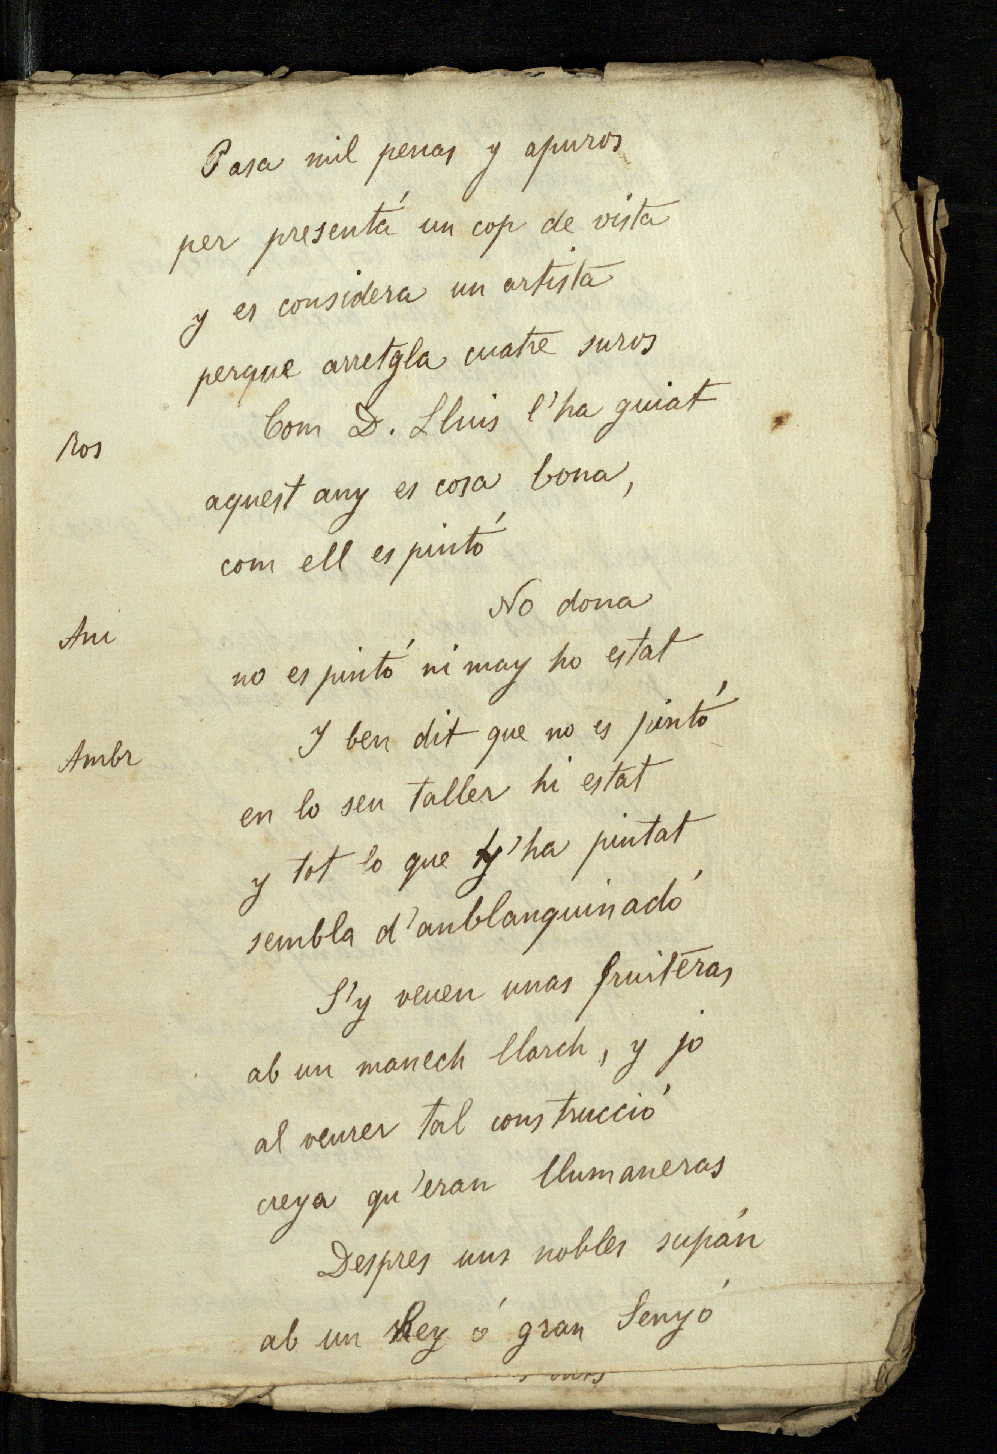 Pasa mil penas y apuros
per presentá un cop de vista
y es considera un artista
perque arretgla cuatre suros
Ros Com D. Lluis l'ha guiat
aquest any es cosa bona,
com ell es pintó
Ani No dona
no es pintó ni may ho estat
Ambr Y ben dit que no es pintó
en lo seu taller hi estat
y tot lo que y'ha pintat
sembla d'anblanquinadó
S'y veuen unas fruiteras
ab un manech llarch, y jo
al veurer tal construcció
creya qu'eran llumaneras
Despres uns nobles supán
ab un Rey ó gran Senyó